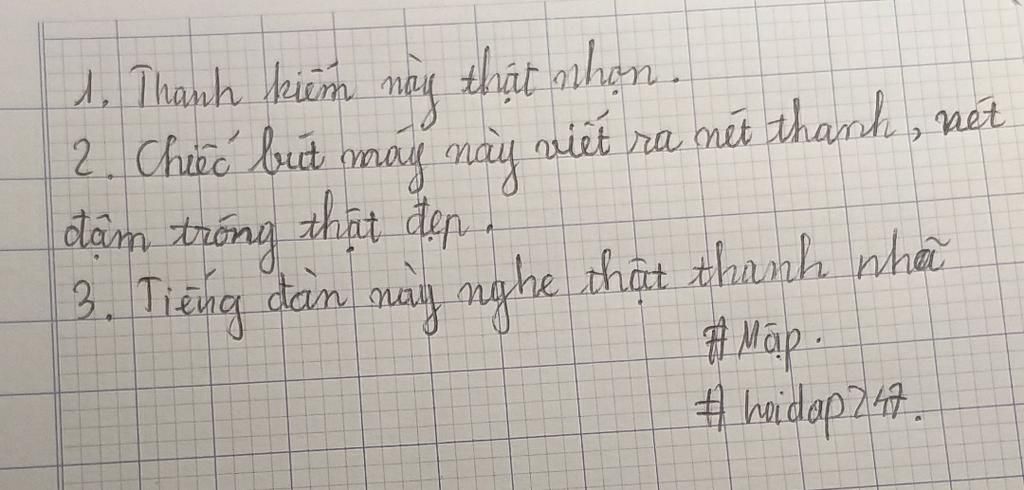 1. Thanh kiếm này thật nhọn.
2. Chiếc bút máy này viết ra nét thanh, nét
đậm trông thật đẹp.
3. Tiếng đàn này nghe thật thanh nhã
# Mập.
# hoidap247.